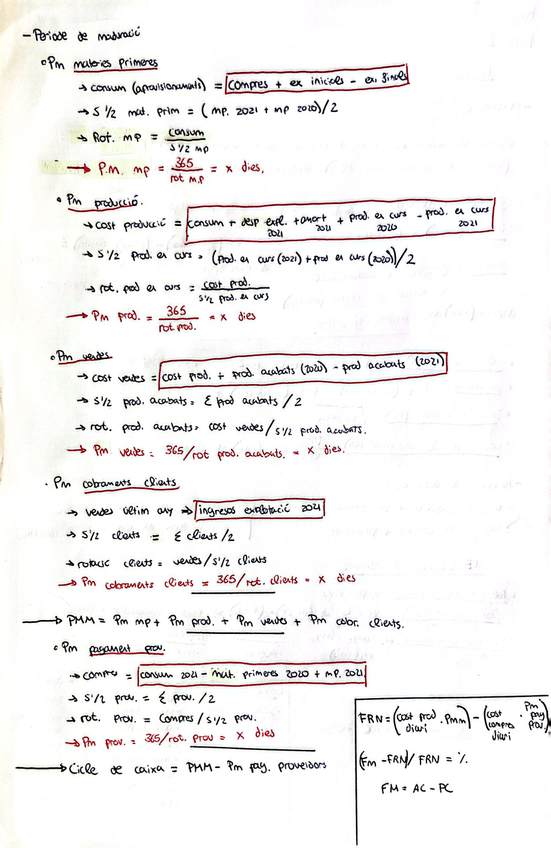 - Període de maduració
• Pm matèries primeres
→ consum (aprovisionaments) = compres + ex inicials - ex. finals
→ S 1/2 mat. prim = (mp. 2021 + mp 2020)/2
→ Rot. mp = consum / s 1/2 mp
→ P.M. mp = 365 / rot m.p = x dies.
• Pm producció.
→ cost producció = consum + desp expl. 2021 + amort 2021 + prod. en curs 2020 - prod. en curs 2021
→ S 1/2 prod. en curs = (Prod. en curs (2021) + prod en curs (2020))/2
→ rot. prod en curs = cost prod. / s 1/2 prod. en curs
→ Pm prod. = 365 / rot. prod. = x dies
• Pm vendes
→ cost vendes = cost prod. + prod. acabats (2020) - prod acabats (2021)
→ S 1/2 prod. acabats = Σ prod acabats /2
→ rot. prod. acabats = cost vendes / s 1/2 prod. acabats.
→ Pm vendes = 365/rot prod. acabats. = x dies.
• Pm cobraments clients
→ vendes últim any → ingresos explotació 2021
→ S 1/2 clients = Σ clients /2
→ rotació clients = vendes / s 1/2 clients
→ Pm cobraments clients = 365/rot. clients = x dies
→ PMM = Pm mp + Pm prod. + Pm vendes + Pm cobr. clients.
• Pm pagament prov.
→ compres = consum 2021 - mat. primeres 2020 + mp. 2021
→ S 1/2 prov. = Σ prov. /2
→ rot. Prov. = Compres / s 1/2 prov.
→ Pm prov. = 365/rot. prov = x dies
→ Cicle de caixa = PMM - Pm pag. proveidors
FRN = (cost prod diari . Pmm) - (cost compres diari . Pm pag prov.)
(Fm - FRN) / FRN = %.
FM = AC - PC